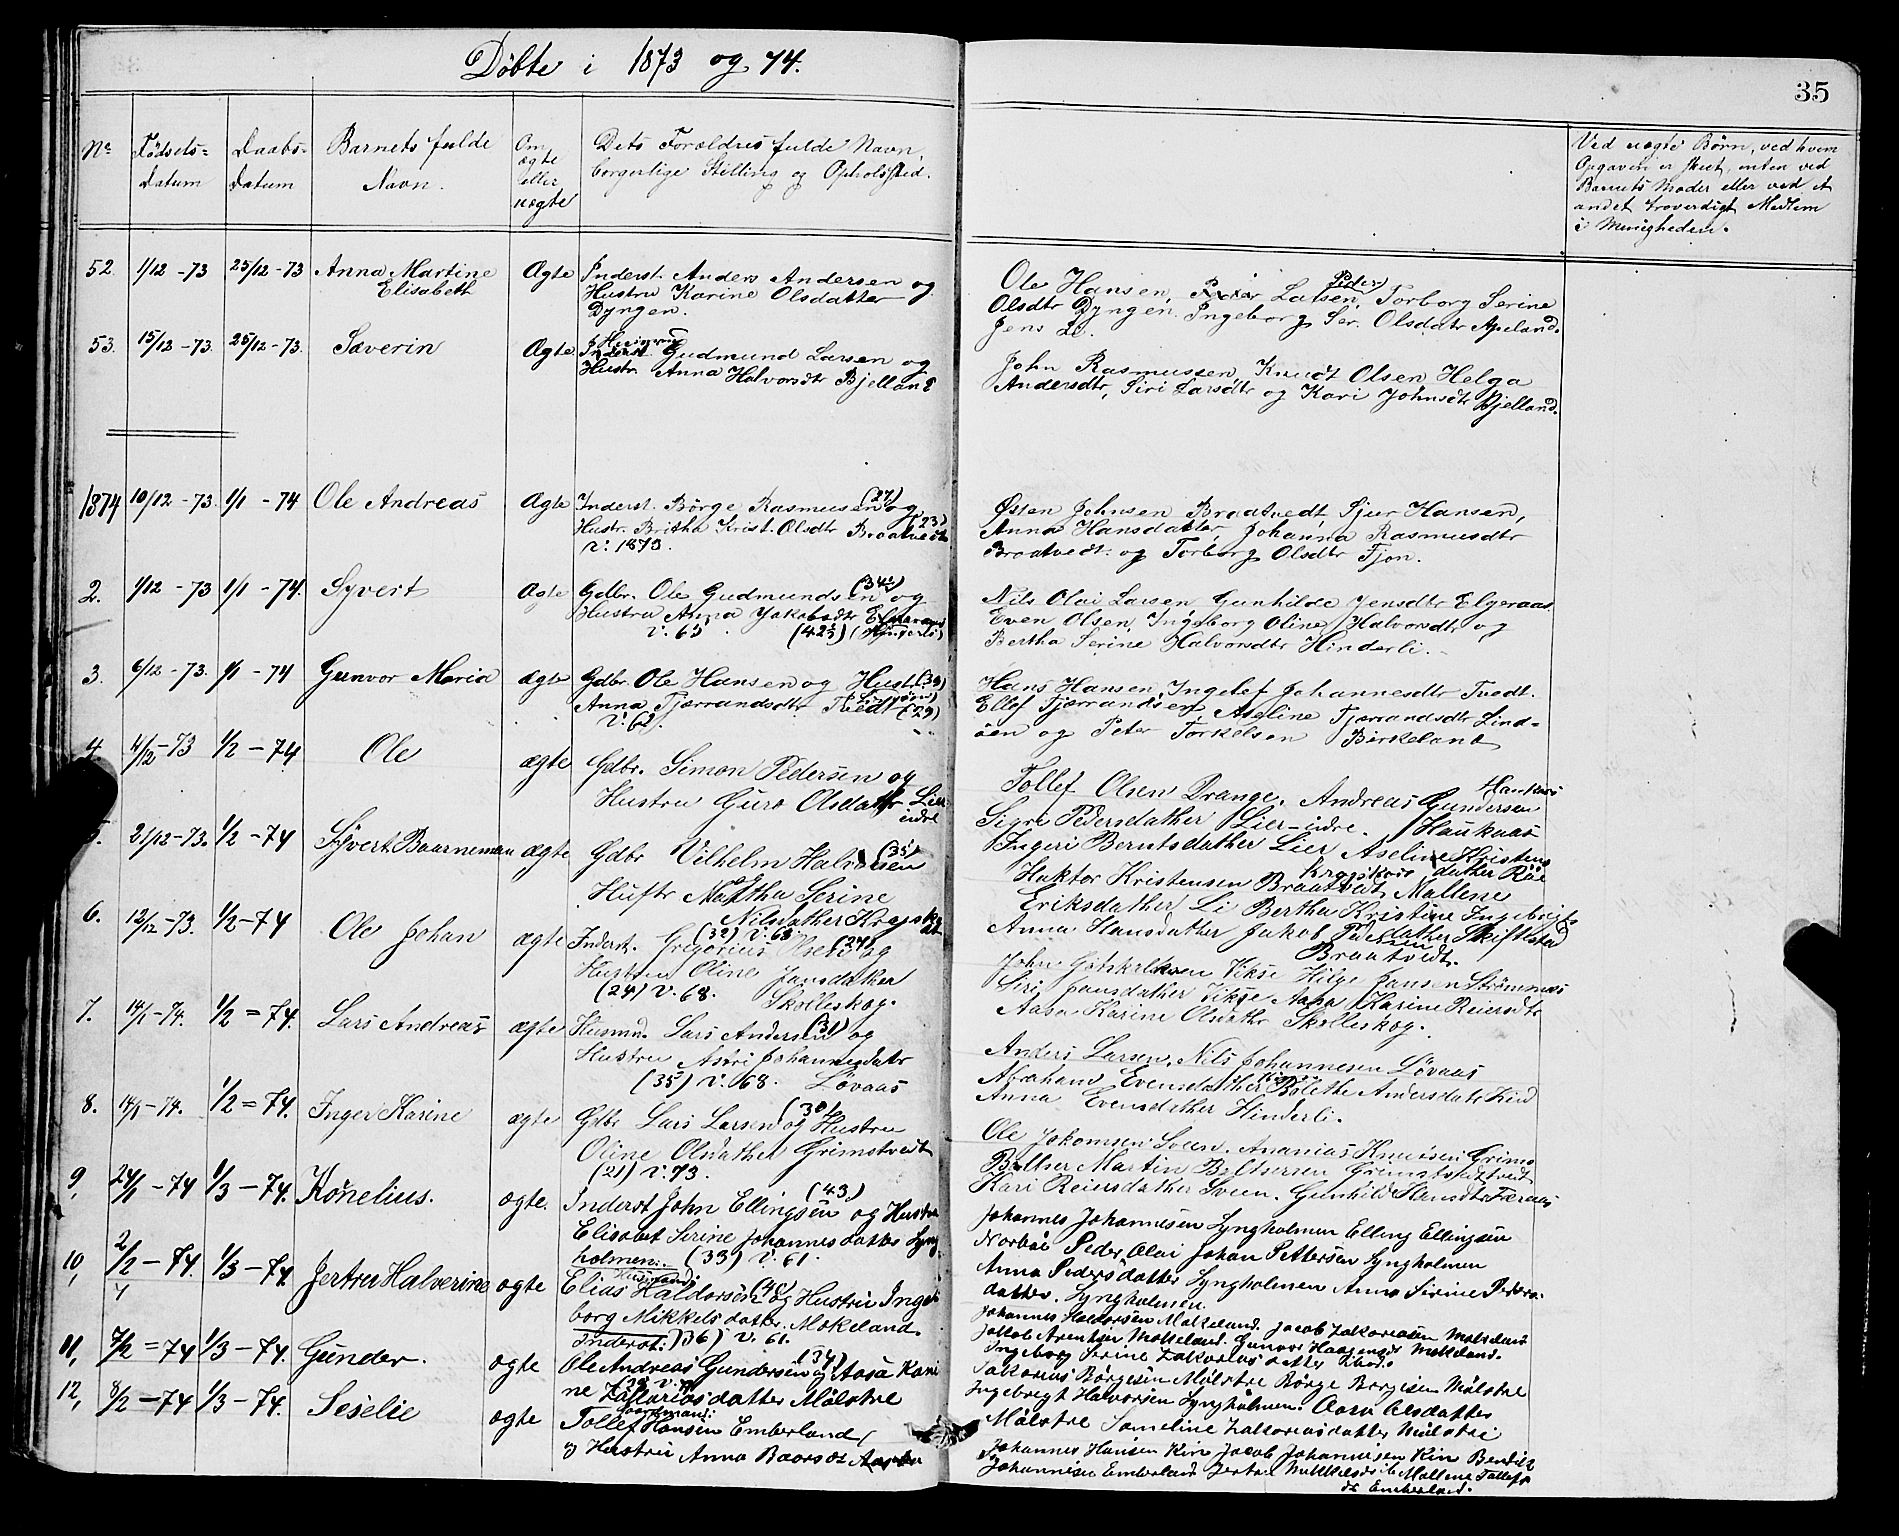 Döbte i 1873 og 74.
35
No
Födsels-
datum
Daabs-
datum
Barnets fulde
Navn.
Om
ægte
eller
uægte
Dets Forældres fulde Navn,
borgerlige Stilling og Opholssted.
Ved uægte Börn, ved hvem
Opgaven er skeet, enten ved
Barnets Moder eller ved et
andet troværdigt Medlem
i Menigheden.
52. 1/12 -73 25/12 -73 Anna Martine
Elisabeth
Ægte Inderst. Anders Andersen og
Hustru Karine Olsdatter
Dyngen.
Ole Hansen, Peder Larsen, Torborg Serine
Olsdtr Dyngen. Ingeborg Ser. Olsdatr Apeland.
Jens Li.
53. 15/12 -73. 25/12 -73. Severin
Ægte Inderst. Gudmund Larsen og
Hustr. Anna Halvorsdtr Bjelland
John Rasmussen, Knudt Olsen, Helga
Andersdtr, Siri Larsdtr og Kari Johnsdtr Bjelland.
1874 10/12 -73. 1/1 -74 Ole Andreas
Ægte Inderst. Börge Rasmusen og (27)
Hustr. Britha Krist. Olsdtr Braatvedt (23)
v: 1873.
Østen Johnsen Braatvedt, Sjur Hansen,
Anna Hansdatter, Johanna Rasmusdtr
Braatvedt og Torborg Olsdtr Fjon.
2. 1/12 -73 1/1 -74. Syvert
Ægte Gdbr. Ole Gudmundsen og (34)
Hustru Anna Jakobsdtr
v. 65 (42)
Nils Olai Larsen, Gunhilde Jensdtr Elgeraas
Even Olsen, Ingeborg Oline Halvorsdtr og
Bertha Serine Halvorsdtr Hinderli.
3. 6/12 -73. 1/1 -74 Gunvor Maria
Ægte Gdbr. Ole Hansen og Hust. (39)
Anna Tjærandsdtr Tvedt (29)
v: 62.
Hans Hansen, Ingelef Johannesdtr Tvedt.
Ellef Tjerrandsen, Aseline Tjerrandsdtr Lind-
öen og Peter Torkelsen Birkeland
4. 4/12 -73 1/2 -74 Ole
ægte Gdbr. Simon Pedersen og
Hustru Guro Olsdattr Lier
indre
Tollef Olsen Drange. Andreas Gundersen
Haukaas
Sigri Pedersdatter Lier-indre.
Ingeri Berntsdatter Lier
5. 21/12 -73. 1/2 -74 Syvert Baarneman
ægte Gdbr Vilhelm Halvorsen (35)
Hustr Martha Serine
Nilsdatter
(32) v. 68.
Aseline Kristens
datter Röe
Haktor Kristensen Braatvedt, Mallene
Eriksdatter Li Bertha Kristine Ingebrigts
datter Skiftestad
6. 12/12 -73. 1/2 -74 Ole Johan
ægte Inderst. Gregorius Olsen og (27)
Hustru Oline Jansdatter
(24) v. 68. Skolleskog.
Anna Hansdatter Jakob Pedersen
Braatvedt.
John Gotskalksen Vikse Helge Jansen Strömmes
Siri Jansdatter Vikse Karine Reiersdtr
Aasa Karine Olsdattr Skolleskog.
7. 14/1 -74. 1/2 =74. Lars Andreas
ægte Husmd. Lars Andersen og (31)
Hustru Astri Johannesdatr
(35) v. 68. Lövaas
Anders Larsen, Nils Johannesen Lövaas
Abraham Evensdatter Bolethe Andersdatr Lind
Anna Evensdatter Hinderli.
8. 14/1 -74. 1/2 =74. Inger Karine
ægte Gdbr Lars Larsen og Hustru (30)
Oline Olsdatter Grimstvedt
(21) v. 73.
Ole Jokomsen Sveen. Ananias Knudsen Grims
tvedt
Baltser Martin Baltsersen Grimstvedt
Kari Reiersdatter Sveen. Gunhild Hansdtr Færaas
9, 24/1 -74 1/3 -74. Kornelius.
ægte. Inderst John Ellingsen og Hustru (43)
Elisabet Serine Johannesdatter Lyng
holmen. (33) v. 61.
Johannes Johannesen Lyngholmen Elling Ellingsen
Nordböe Peder Olai Johan Pettersen Lyngholmen
Anna Pedersdatter Lyngholmen Anna Serine Peders
datter. Lyngholmen.
10, 2/2 -74. 1/3 -74. Jertru Halverine
ægte Elias Haldorsen og Hustru Inge (40)
borg Mikkelsdatter. Mokeland.
Inderst: (36) v. 61.
Johannes Haldorsen Mokeland. Jacob Zakariasen Mokeland
Jakob Arentsen Mokeland. Gunvor Haagensdr Mokeland.
Ingeborg Serine Zakariasdatter
11, 7/2 =74 1/3 -74. Gunder.
ægte Ole Andreas Gundersen og Aasa Kari (34)
ne Zakariasdatter Mölstre
Sakarias Börgesen Mölstre Börge Borgesen Mölstre
Ingebregt Halvorsen Lyngholmen. Aasa Olsdatter
Mölstre Sameline Zakariasdatter Mölstre
12, 8/2 -74 1/3 -74. Seselie
ægte Tollef Hansen Emberland
og Hustru Anna Baarsdr
Johannes Hansen Kin Jacob Johannesen Kin Bendik
Johannesen Emberland Jertru Mikkelsdr Mallene Tollefs
dr Emberland.